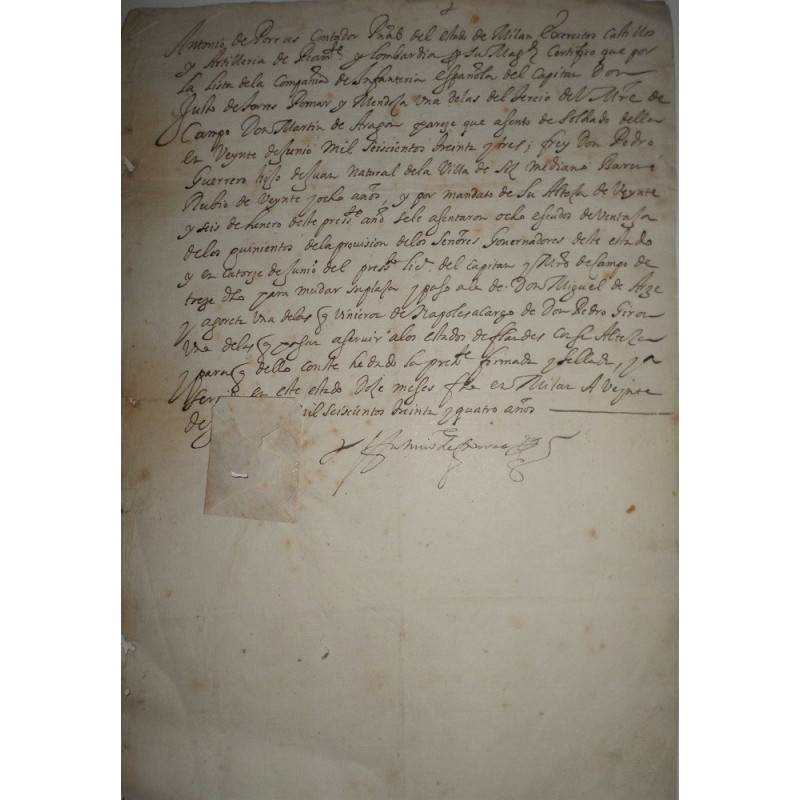 Antonio de Porras Contador Prāl del estado de Milan Exercitos Castillos
y Artilleria de Piamte y lombardia por su Magd Certifico que por
la lista dela Compañia de Infanteria española del Capitan Don
Justo de torres Pomar y Mendoza una delas del tercio del Mre de
Campo Don Martin de Aragon pareze que asento de Soldado della
en Veynte de Junio Mil Seiscientos treinta y tres; frey Don Pedro
Guerrero hijo de Juan Natural dela Villa de mediana
Rubio de Veynte y ocho años, y por mandato de Su Alteza de Veynte
y seis de henero deste presste año sele asentaron ocho escudos de Ventaja
delos quinientos dela provision delos Señores Governadores deste estado
y en Catorze de Junio del presste licª del Capitan y Mro de Campo de
treze dho para mudar su plaza y paso ala de Don Miguel de
una delas q vinieron de Napoles a cargo de Don Pedro Giron
una delas q pasan a servir alos estados de flandes con su Alteza
y para q dello conste he dado la presste firmada y sellada, y a
en este estado Doze meses fha en Milan A Veynte
de mil Seiscientos treinta y quatro años
Antonio de Porras